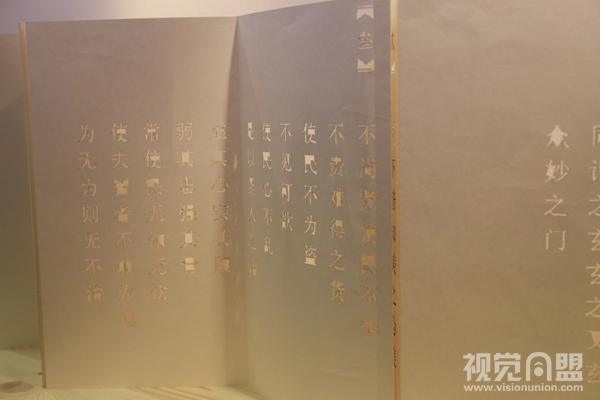 同谓之玄玄之又玄
众妙之门
叁
不尚贤使民不争
不贵难得之货
使民不为盗
不见可欲
使民心不乱
是以圣人之治
其心实其
弱其志强其骨
常使民无知无欲
使夫智者不敢为也
为无为则无不治
视觉同盟
www.visionunion.com